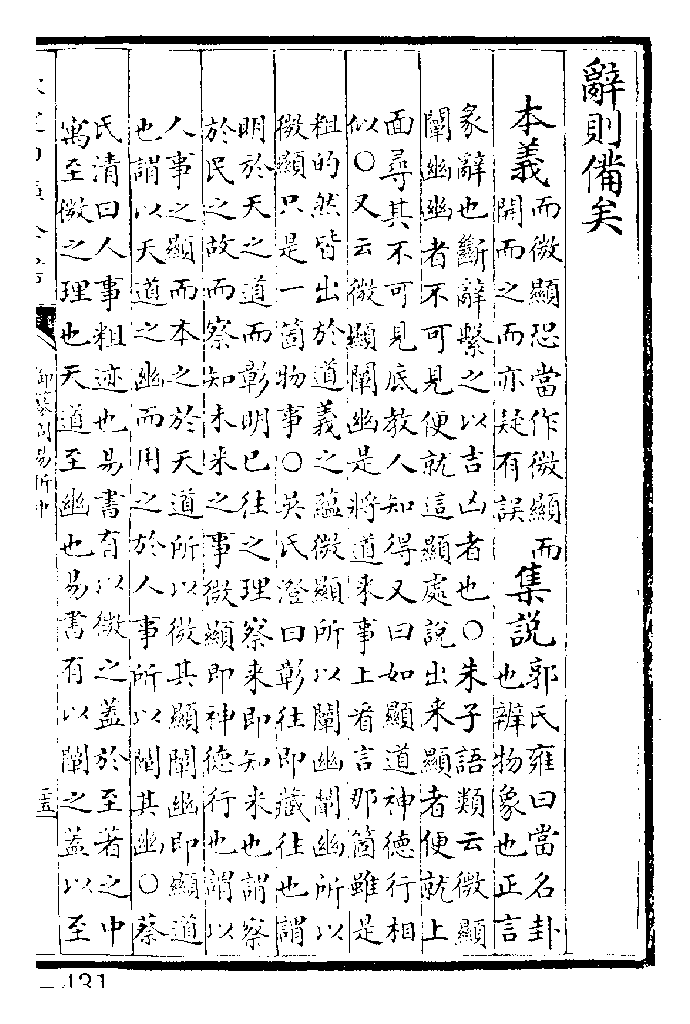 辭則備矣
本義
而微顯恐當作微顯而
開而之而亦疑有誤
集説
郭氏雍曰當名卦
也辨物象也正言
彖辭也斷辭繫之以吉凶者也〇朱子語類云微顯
闡幽幽者不可見便就這顯處說出来顯者便就上
面尋其不可見底教人知得又曰如顯道神德行相
似〇又云微顯闡幽是將道来事上看言那箇雖是
粗的然皆出於道義之蘊微顯所以闡幽闡幽所以
微顯只是一箇物事〇吳氏澄曰彰往即藏往也謂
明於天之道而彰明已往之理察来即知来也謂察
於民之故而察知未来之事微顯即神德行也謂以
人事之顯而本之於天道所以微其顯闡幽即顯道
也謂以天道之幽而用之於人事所以闡其幽〇蔡
氏清曰人事粗迹也易書有以微之盖於至著之中
寓至微之理也天道至幽也易書有以闡之盖以至
御纂周易折中